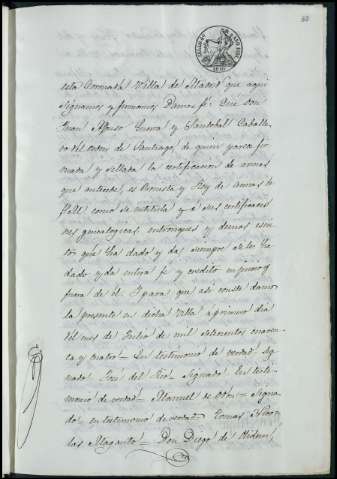 esta Coronada Villa de Madrid que aqui
signamos y firmamos Damos fé: Que Don
Juan Alfonso Guerra y Sandobal Caballe-
ro del orden de Santiago, de quien parece fir-
mada y sellada la certificacion de armas
que antecede, es Cronista y Rey de armas
como se intitula y á sus certificacio-
nes genealogicas, entronques y demas escri-
tos que ha dado y da siempre se les ha
dado y da entera fé y credito en juicio y
fuera de él. Y para que asi conste damos
la presente en dicha Villa a primero dia
del mes de Julio de mil setecientos cuaren-
ta y cuatro = En testimonio de verdad sig-
nado José del Rio = Signado En testi-
monio de verdad = Manuel = Signa-
do, en testimonio de verdad Tomas Nico-
las Maganto = Don Diego de